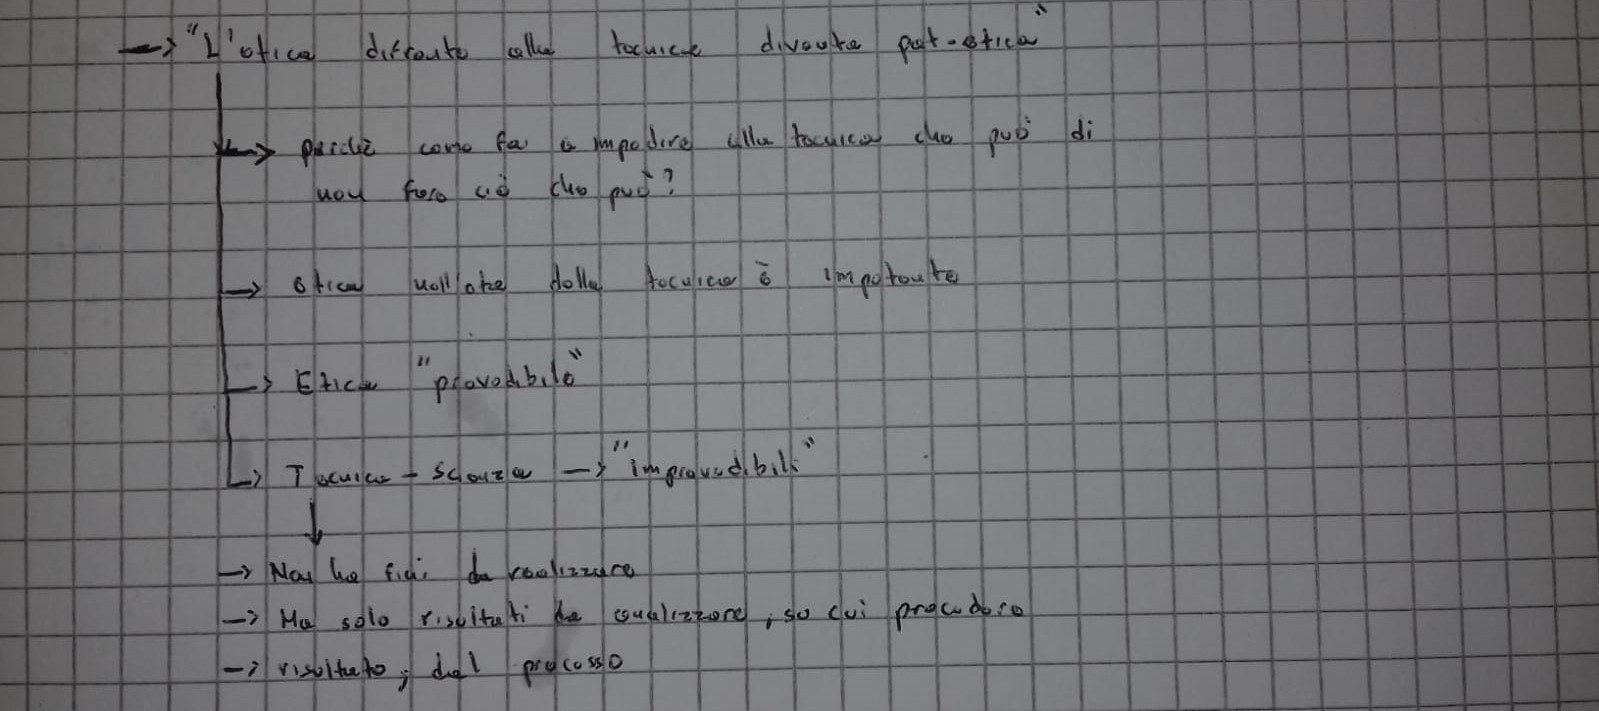 → "L'etica difronte alla tecnica diventa pat-etica"
→ perché come fa a impedire alla tecnica che può di
non fare ciò che può?
→ etica nell'età della tecnica è impotente
→ Etica "prevedibile"
→ Tecnica - Scienza → "imprevedibili"
↓
→ Non ha fini da realizzare
→ Ma solo risultati da analizzare, su cui procedere
→ risultato, dal processo